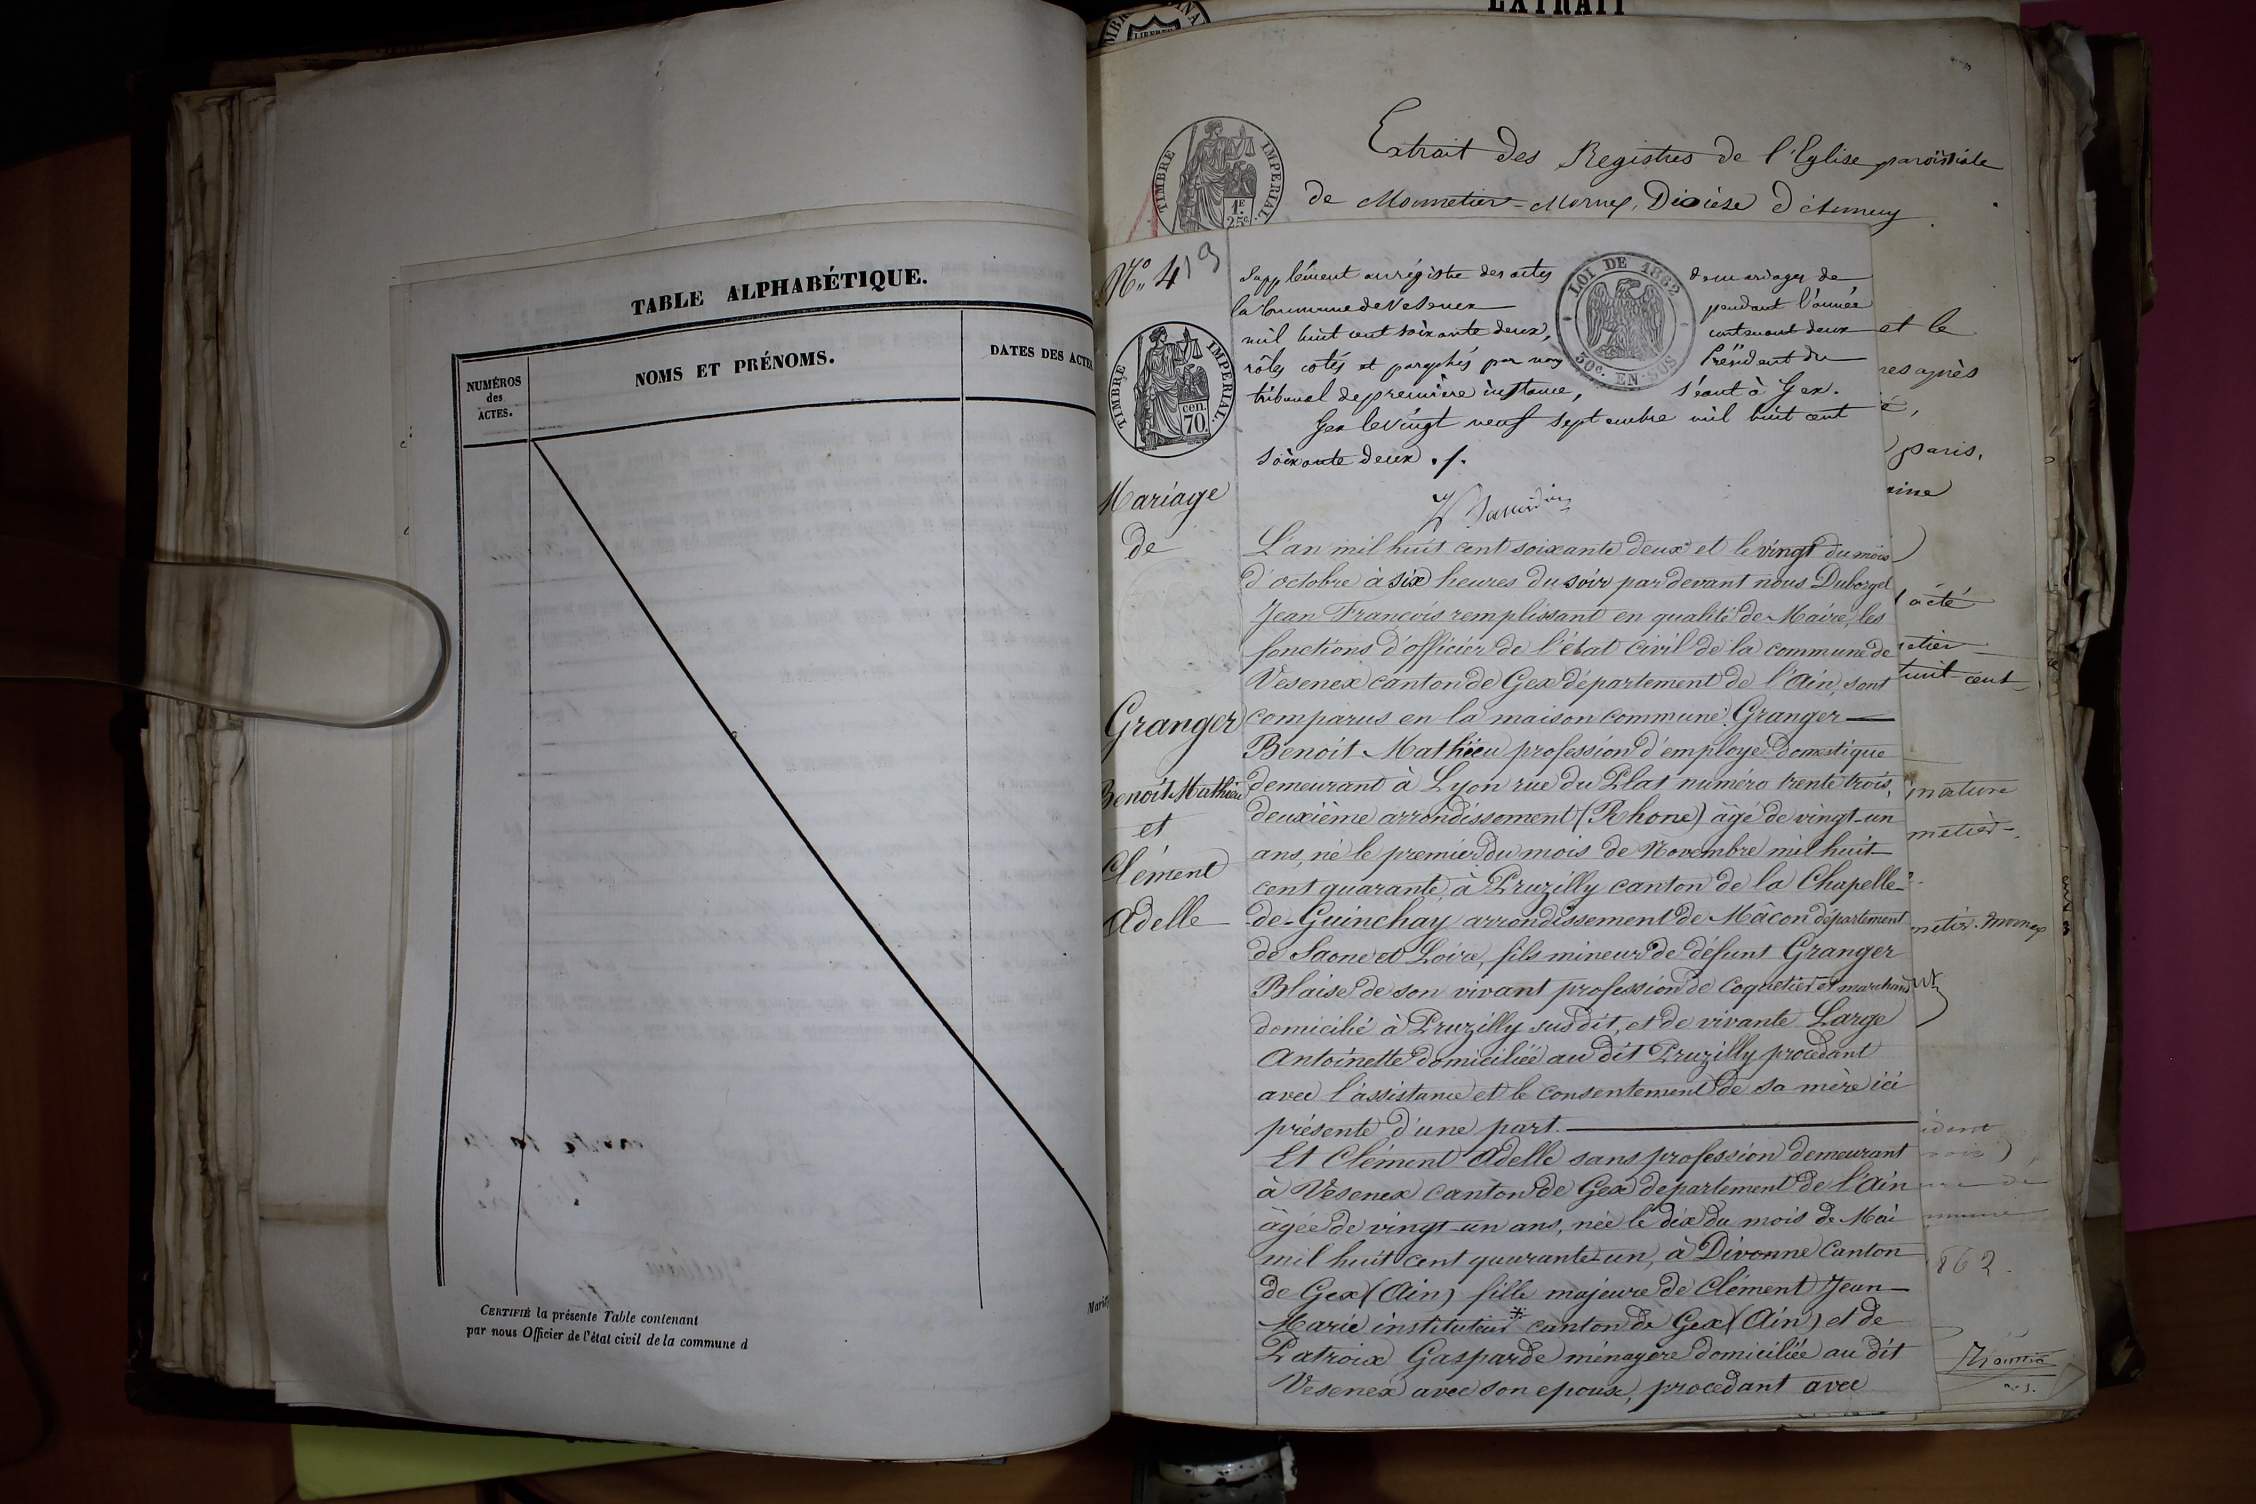 TABLE ALPHABÉTIQUE.
NUMÉROS
des
ACTES.
NOMS ET PRÉNOMS.
DATES DES ACTES
CERTIFIÉ la présente Table contenant
par nous Officier de l'état civil de la commune d
EXTRAIT
Extrait des Registres de l'Eglise paroissiale
de Monnetier-Mornex, Diocèse d'Annecy
TIMBRE IMPERIAL.
1F.
25c.
N° 4
Supplément au régistre des actes de mariages de
la Commune de Vesenex pendant l'année
mil huit cent soixante deux, contenant deux
rôles cotés et paraphés par nous Président du
tribunal de première instance, séant à Gex.
Gex le vingt neuf septembre mil huit cent
soixante deux ./.
LOI DE 1862
50c. EN SUS
TIMBRE IMPERIAL.
cen.
70.
Mariage
de
Granger
Benoit Mathieu
et
Clément
Adelle
L'an mil huit cent soixante deux et le vingt du mois
d'octobre à six heures du soir par devant nous Duborgel
Jean François remplissant en qualité de Maire, les
fonctions d'officier de l'état civil de la commune de
Vesenex canton de Gex département de l'Ain, sont
comparus en la maison commune Granger
Benoit Mathieu profession d'employé domestique
demeurant à Lyon rue du Plat numéro trente trois,
deuxième arrondissement (Rhone) âgé de vingt-un
ans, né le premier du mois de Novembre mil huit
cent quarante, à Pruzilly canton de la Chapelle
de-Guinchay arrondissement de Mâcon département
de Saone et Loire, fils mineur de défunt Granger
Blaise de son vivant profession de coquetier et marchand
domicilié à Pruzilly susdit, et de vivante Large
Antoinette domiciliée au dit Pruzilly procédant
avec l'assistance et le consentement de sa mère ici
présente d'une part.
Et Clément Adelle sans profession demeurant
à Vesenex canton de Gex departement de l'Ain
âgée de vingt-un ans, née le dix du mois de Mai
mil huit cent quarante-un, à Divonne canton
de Gex (Ain) fille majeure de Clément Jean-
Marie instituteur * canton de Gex (Ain) et de
Patroix Gasparde ménagère domiciliée au dit
Vesenex avec son epoux, procedant avec
et le
paris,
acté